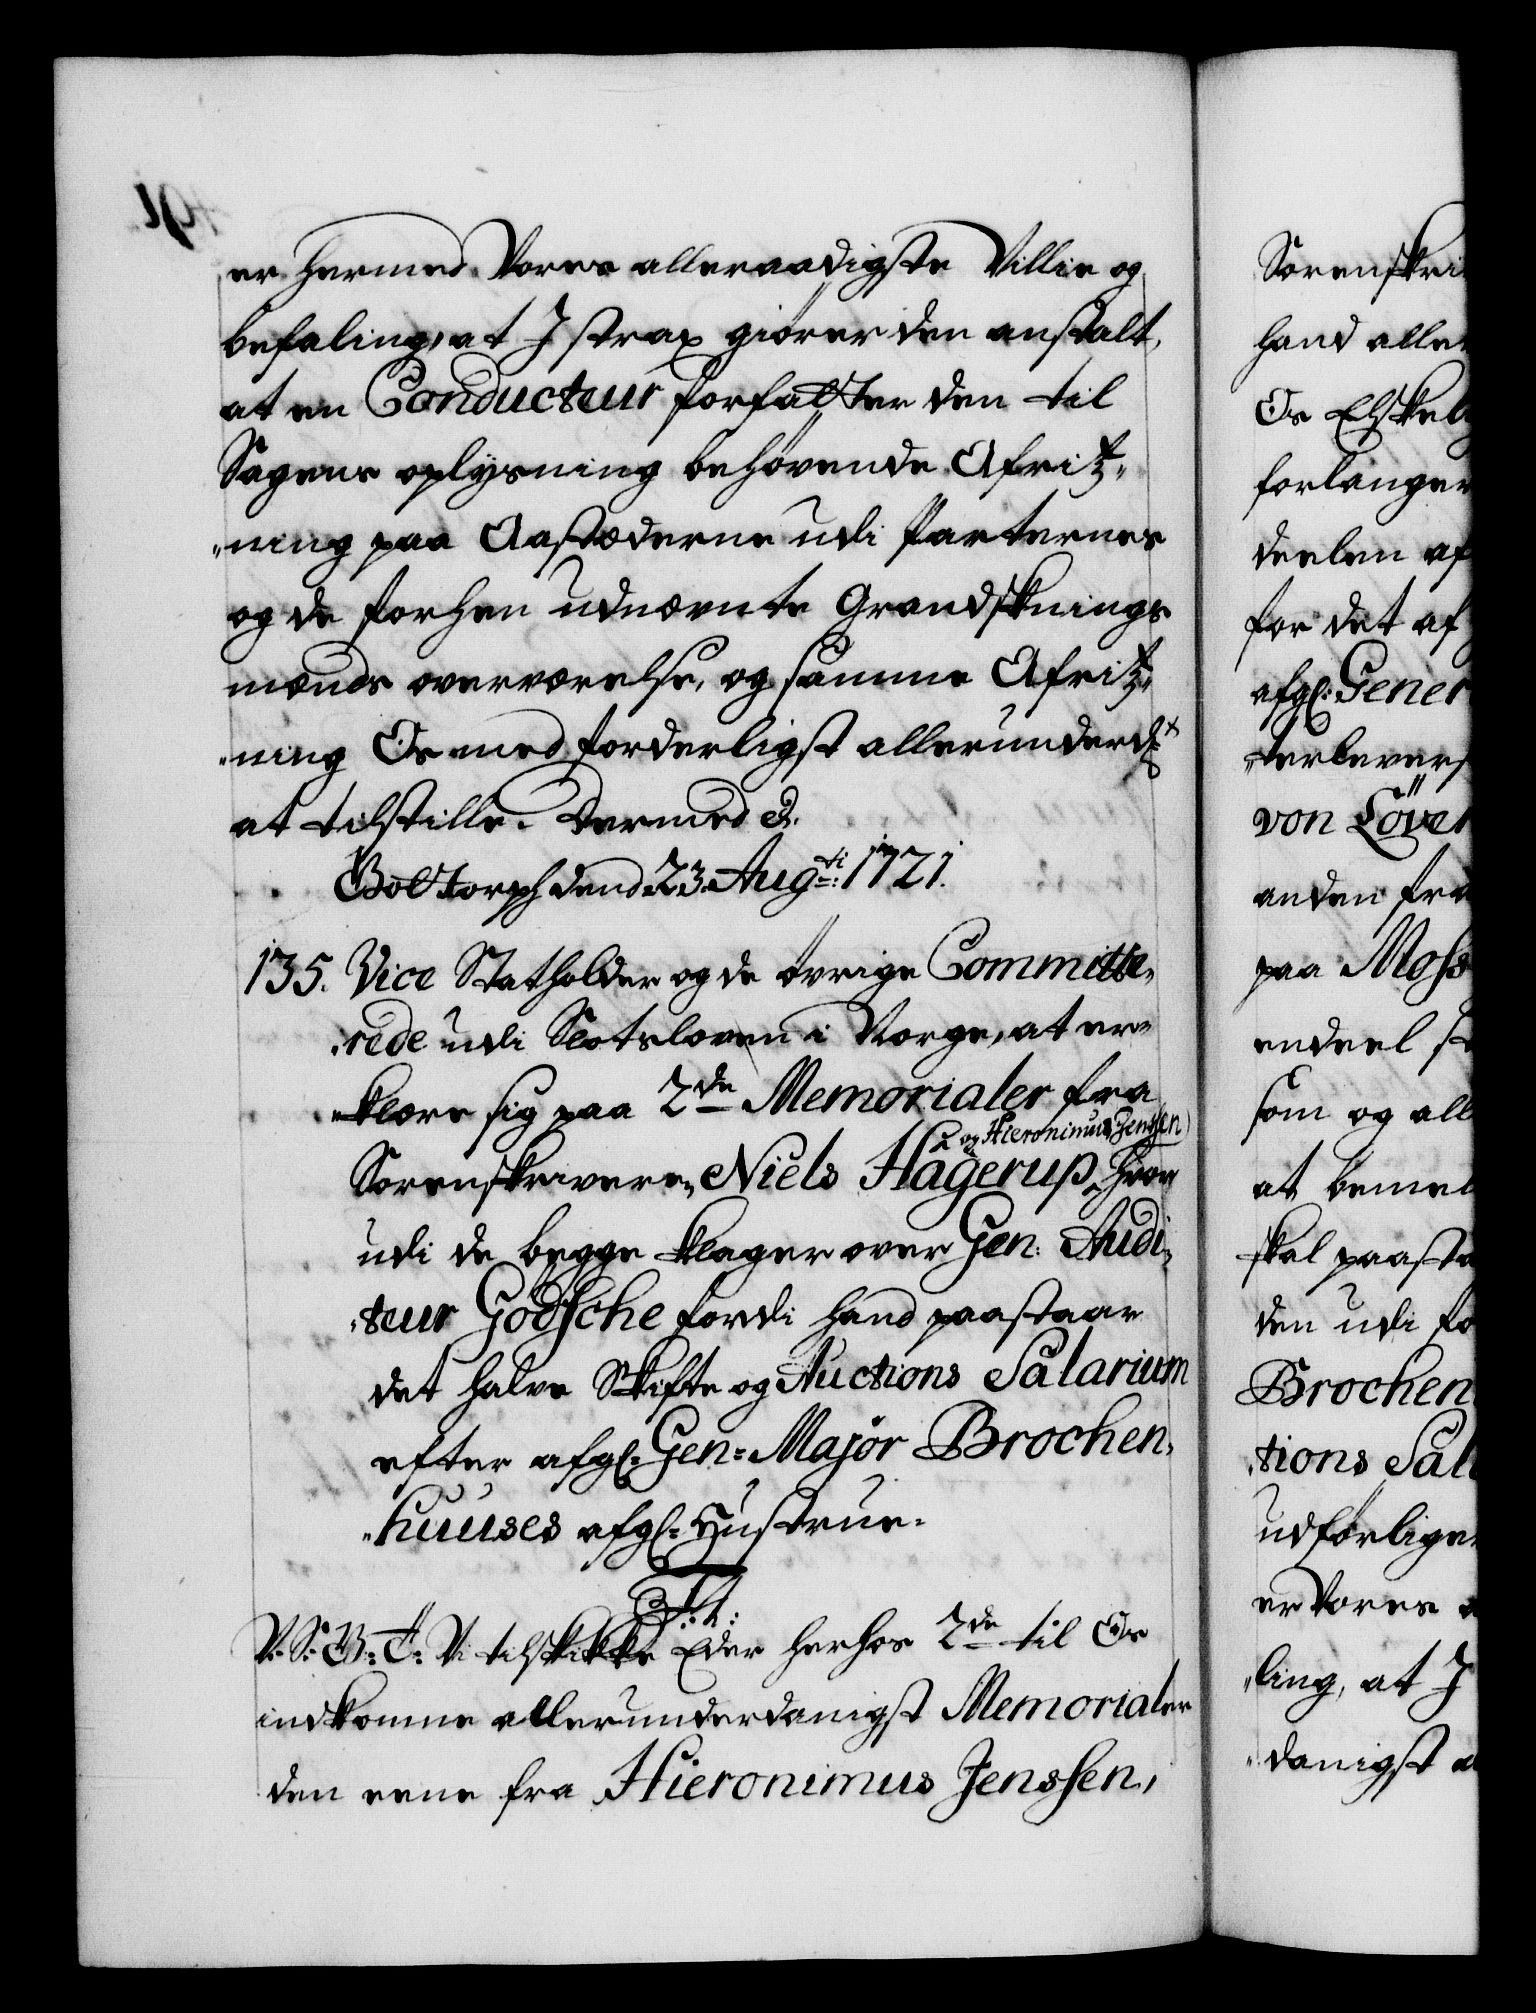 er hermed Vores allernaadigste Villie og
befaling, at I strax giører den anstalt,
at en Conducteur forfatter den til
Sagens oplysning behøvende Afritz-
ning paa Aastæderne udi Parternes
og de forhen udnævnte Grandsknings
mænds overværelse, og samme Afritz-
ning Os med forderligst allerunderd:st
at tilstille. Dermed &.
Gottorph dend 23. Aug:ti 1721.
135. Vice Statholder og de øvrige Committe-
rede udi Slotsloven i Norge, at er-
klære sig paa 2de Memorialer fra
og Hieronimus Jenssen
Sorenskriverne Niels Hagerup, hvor
udi de begge klager over Gen: Audi-
teur Godsche fordi hand paastaar
det halve Skifte og Auctions Salarium
efter afg: Gen: Major Brochen-
huuses afg: Hustrue.
F. 4.
V. S. G. T. Vi tilskikke Eder herhos 2de til Os
indkomne allerunderdanigst Memorialer
den eene fra Hieronimus Jenssen,
Sorenskri
hand aller
Os Elskel
forlanger
deelen af
for det af
afg: Gener
terlevers
von Löve
anden fra
paa Moss
endeel
som og all
at bemel
skal paasta
den udi fo
Brochen
tions Sal
udførlige
er Vores
ling, at I
danigst